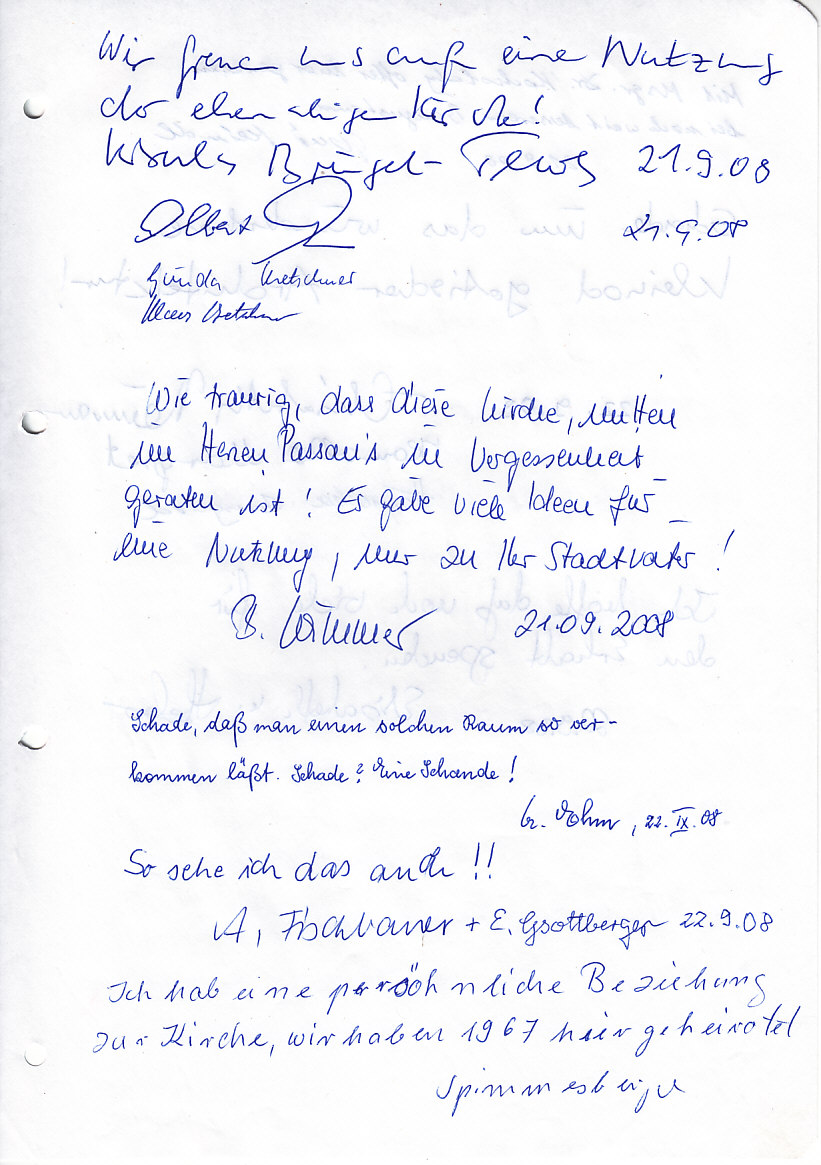 Wir freuen uns auf eine Nutzung
der ehemaligen Kirche!
Ursula 21.9.08
Albert 21.9.08
Gunda Kretschmer
Klaus Kretschmer
Wie traurig, dass diese Kirche, mitten
im Herzen Passau's in Vergessenheit
geraten ist! Es gäbe viele Ideen für
eine Nutzung, nur zu Ihr Stadtväter!
B. Wimmer 21.09.2008
Schade, daß man einen solchen Raum so ver-
kommen läßt. Schade? Eine Schande!
22. IX. 08
So sehe ich das auch!!
A. Fischbauer + E. Gsottberger 22.9.08
Ich hab eine persöhnliche Beziehung
zur Kirche, wir haben 1967 hier geheiratet